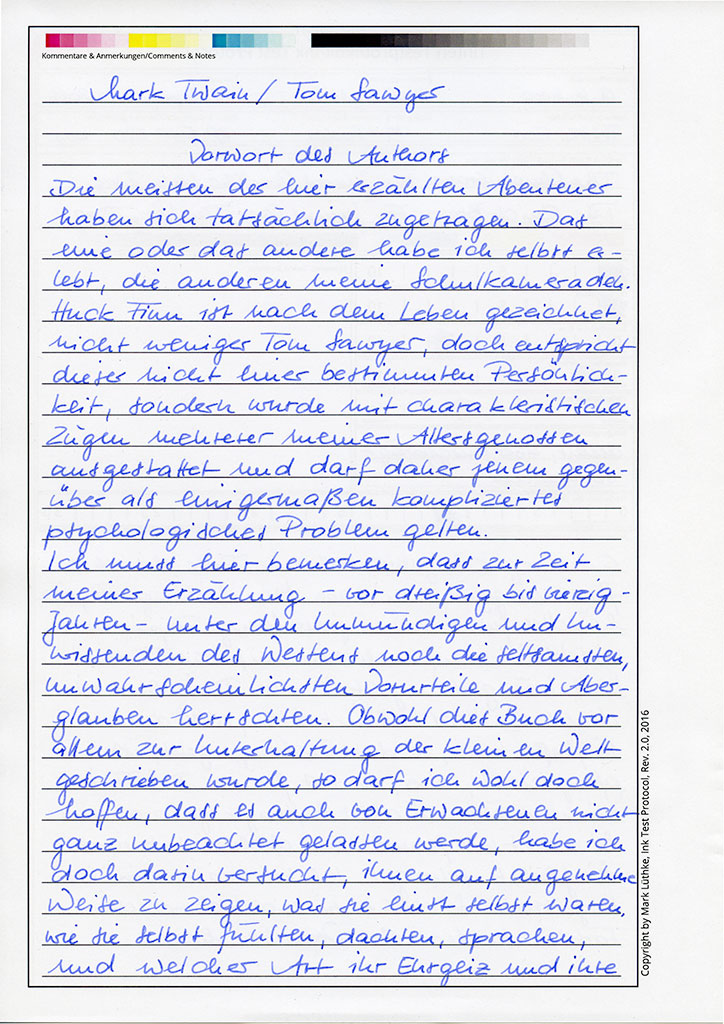 Kommentare & Anmerkungen/Comments & Notes
Mark Twain / Tom Sawyer
Vorwort des Authors
Die meisten der hier erzählten Abenteuer
haben sich tatsächlich zugetragen. Das
eine oder das andere habe ich selbst er-
lebt, die anderen meine Schulkameraden.
Huck Finn ist nach dem Leben gezeichnet,
nicht weniger Tom Sawyer, doch entspricht
dieser nicht einer bestimmten Persönlich-
keit, sondern wurde mit charakteristischen
Zügen mehrerer meiner Altersgenossen
ausgestattet und darf daher jenem gegen-
über als einigermaßen kompliziertes
psychologisches Problem gelten.
Ich muss hier bemerken, dass zur Zeit
meiner Erzählung – vor dreißig bis vierzig -
Jahren – unter den Unmündigen und Un-
wissenden des Westens noch die seltsamsten,
unwahrscheinlichsten Vorurteile und Aber-
glauben herrschten. Obwohl dies Buch vor
allem zur Unterhaltung der kleinen Welt
geschrieben wurde, so darf ich wohl doch
hoffen, dass es auch von Erwachsenen nicht
ganz unbeachtet gelassen werde, habe ich
doch darin versucht, ihnen auf angenehme
Weise zu zeigen, was sie einst selbst waren,
wie sie selbst fühlten, dachten, sprachen,
und welcher Art ihr Ehrgeiz und ihre
Copyright by Mark Lüthke, Ink Test Protocol, Rev. 2.0, 2016